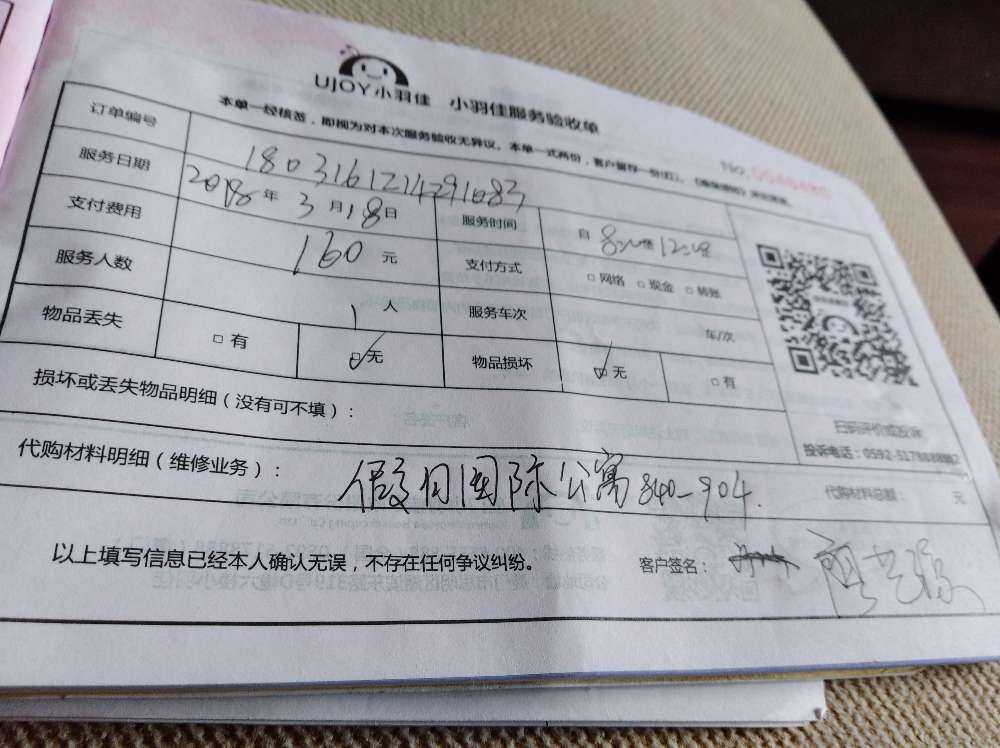 UJOY小羽佳 小羽佳服务验收单
本单一经核签,即视为对本次服务验收无异议。本单一式两份,客户留存一份(红)。
No.
订单编号 1803161214291683
服务日期 2018年3月18日 服务时间 自
支付费用 160元 支付方式 □网络 □现金 □转账
服务人数 1人 服务车次 车/次
物品丢失 □有 ☑无 物品损坏 ☑无 □有
扫码评价或投诉
损坏或丢失物品明细(没有可不填):
投诉电话:0592-5178888
代购材料明细(维修业务): 假日国际公寓840-904. 代购材料总额: 元
以上填写信息已经本人确认无误,不存在任何争议纠纷。 客户签名: